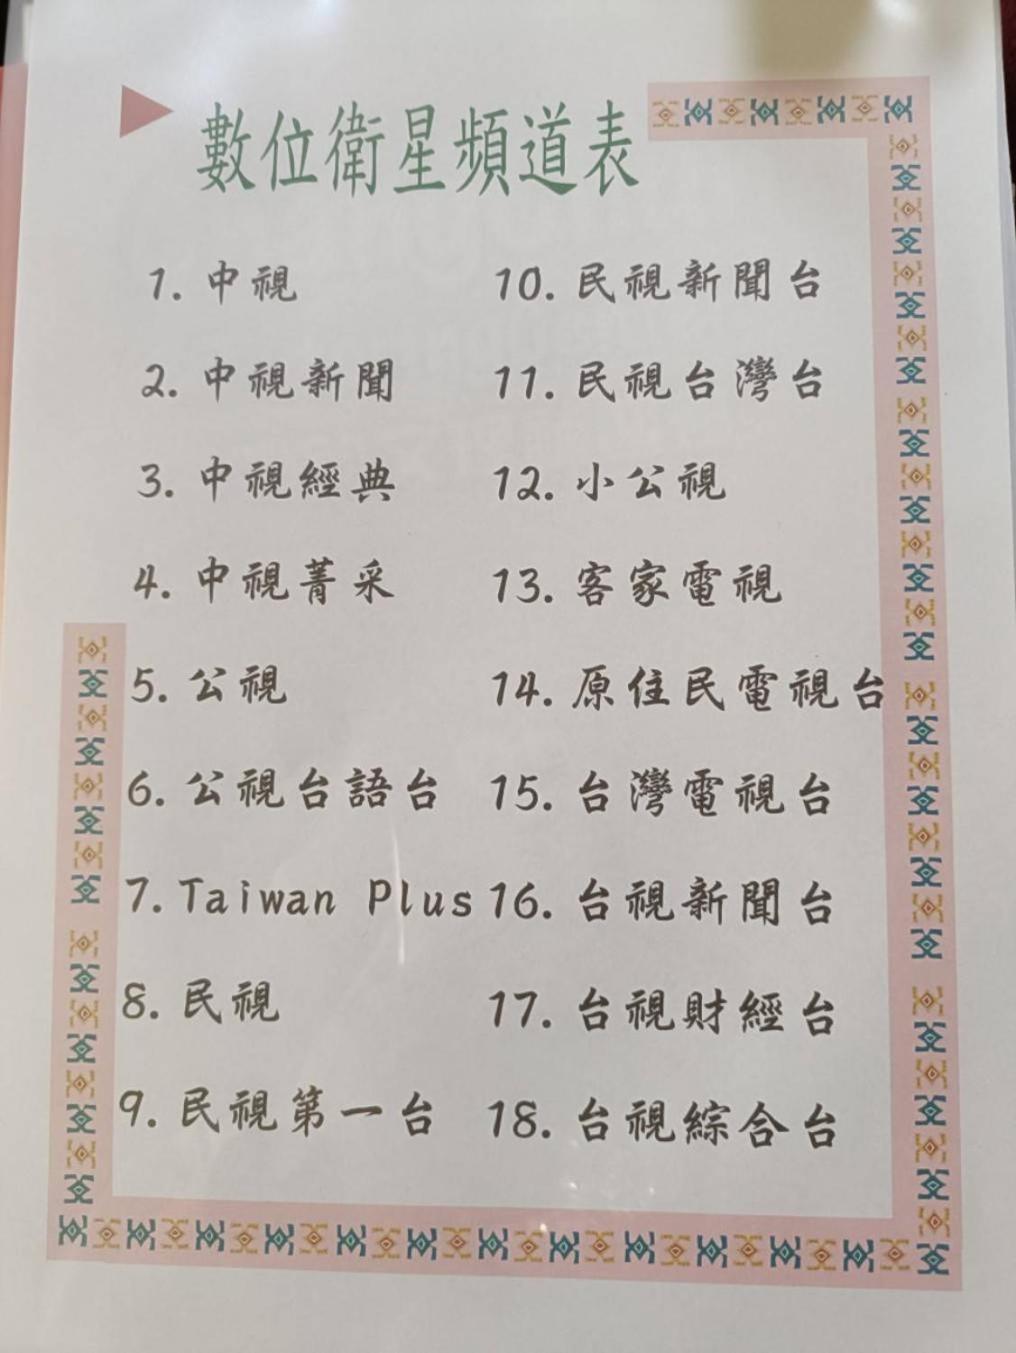 數位衛星頻道表
1. 中視
2. 中視新聞
3. 中視經典
4. 中視菁采
5. 公視
6. 公視台語台
7. Taiwan Plus
8. 民視
9. 民視第一台
10. 民視新聞台
11. 民視台灣台
12. 小公視
13. 客家電視
14. 原住民電視台
15. 台灣電視台
16. 台視新聞台
17. 台視財經台
18. 台視綜合台